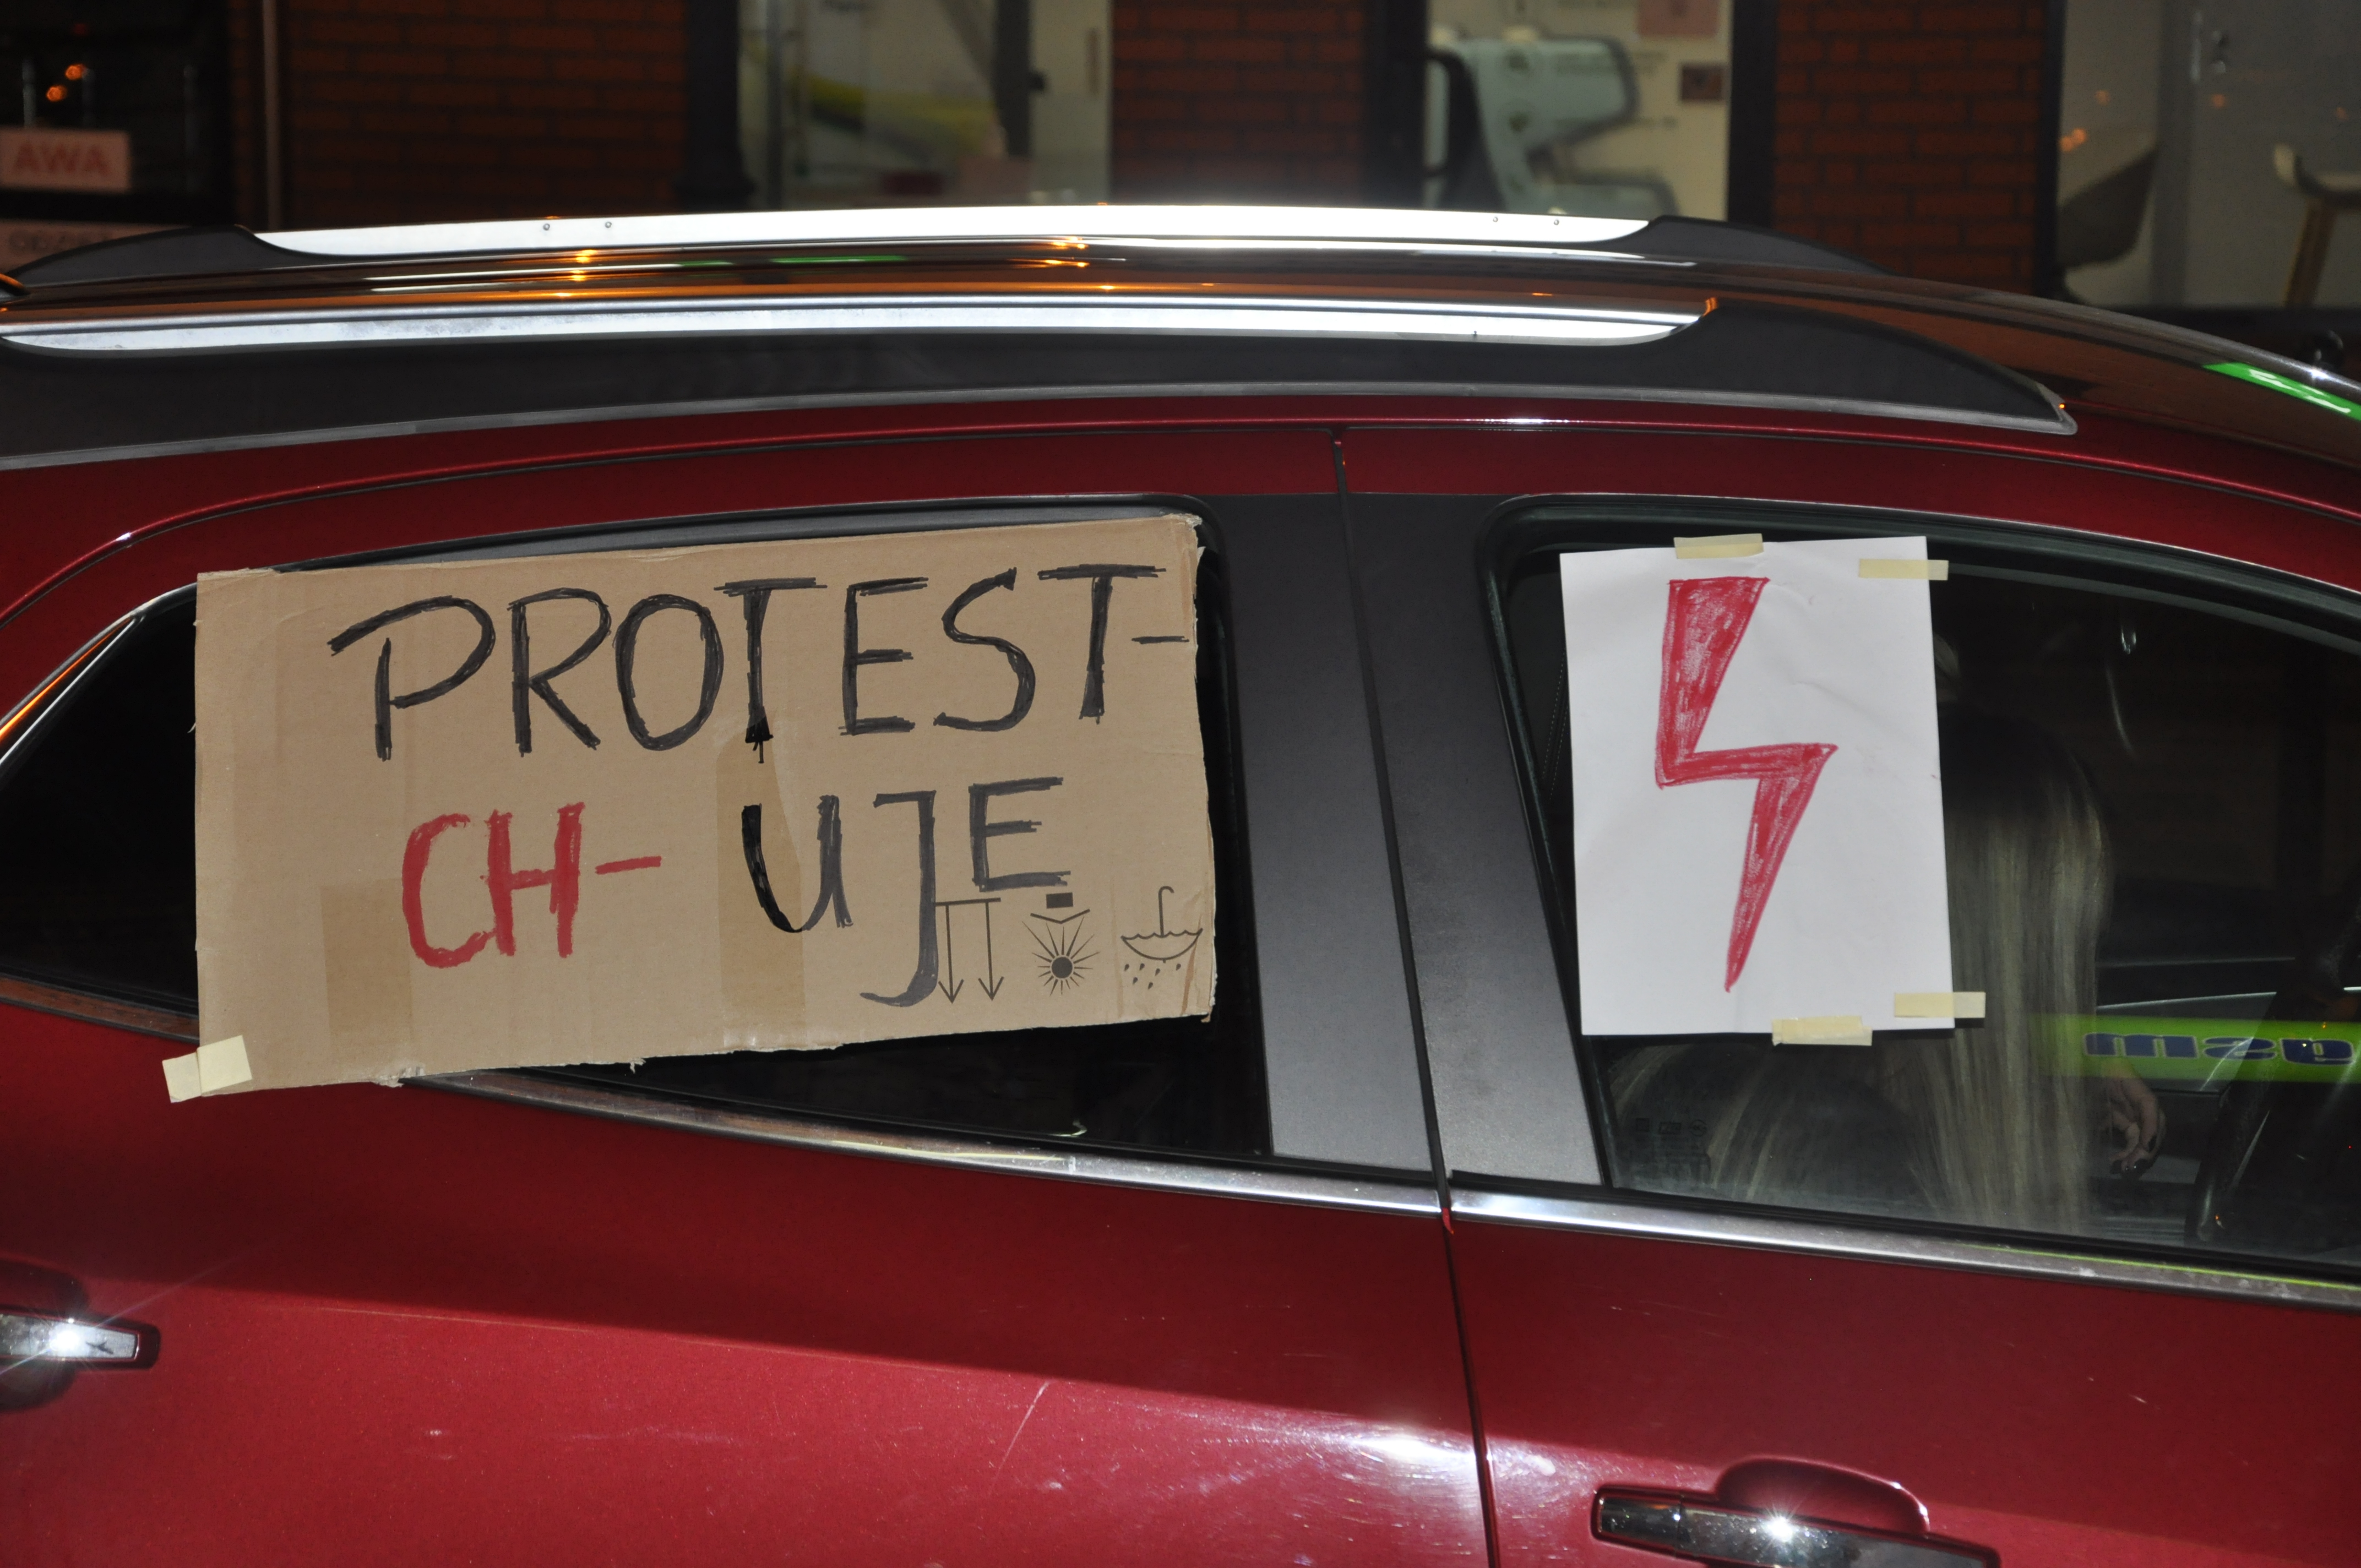 AWA
PROTEST-
CH- UJE